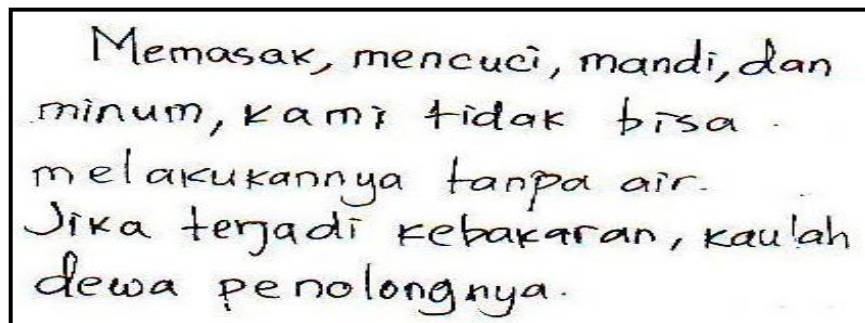 Memasak, mencuci, mandi, dan
minum, kami tidak bisa
melakukannya tanpa air.
Jika terjadi kebakaran, kaulah
dewa penolongnya.